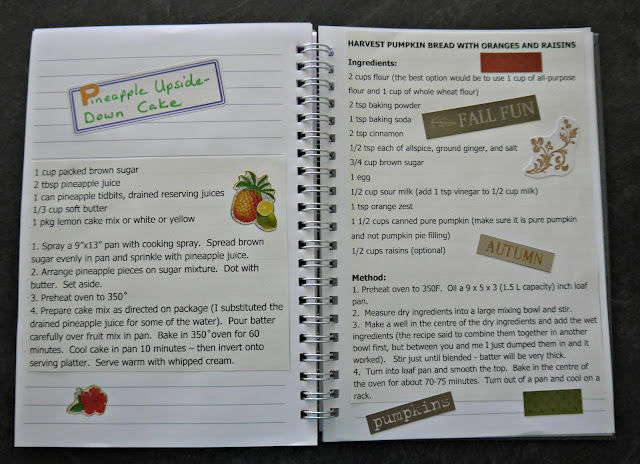 Pineapple Upside-
Down Cake
1 cup packed brown sugar
2 tbsp pineapple juice
1 can pineapple tidbits, drained reserving juices
1/3 cup soft butter
1 pkg lemon cake mix or white or yellow
1. Spray a 9"x13" pan with cooking spray. Spread brown
sugar evenly in pan and sprinkle with pineapple juice.
2. Arrange pineapple pieces on sugar mixture. Dot with
butter. Set aside.
3. Preheat oven to 350˚
4. Prepare cake mix as directed on package (I substituted the
drained pineapple juice for some of the water). Pour batter
carefully over fruit mix in pan. Bake in 350˚oven for 60
minutes. Cool cake in pan 10 minutes – then invert onto
serving platter. Serve warm with whipped cream.
HARVEST PUMPKIN BREAD WITH ORANGES AND RAISINS
Ingredients:
2 cups flour (the best option would be to use 1 cup of all-purpose
flour and 1 cup of whole wheat flour)
2 tsp baking powder
1 tsp baking soda
2 tsp cinnamon
FALL FUN
1/2 tsp each of allspice, ground ginger, and salt
3/4 cup brown sugar
1 egg
1/2 cup sour milk (add 1 tsp vinegar to 1/2 cup milk)
1 tsp orange zest
1 1/2 cups canned pure pumpkin (make sure it is pure pumpkin
and not pumpkin pie filling)
1/2 cups raisins (optional)
AUTUMN
Method:
1. Preheat oven to 350F. Oil a 9 x 5 x 3 (1.5 L capacity) inch loaf
pan.
2. Measure dry ingredients into a large mixing bowl and stir.
3. Make a well in the centre of the dry ingredients and add the wet
ingredients (the recipe said to combine them together in another
bowl first, but between you and me I just dumped them in and it
worked). Stir just until blended - batter will be very thick.
4. Turn into loaf pan and smooth the top. Bake in the centre of
the oven for about 70-75 minutes. Turn out of a pan and cool on a
rack.
pumpkins